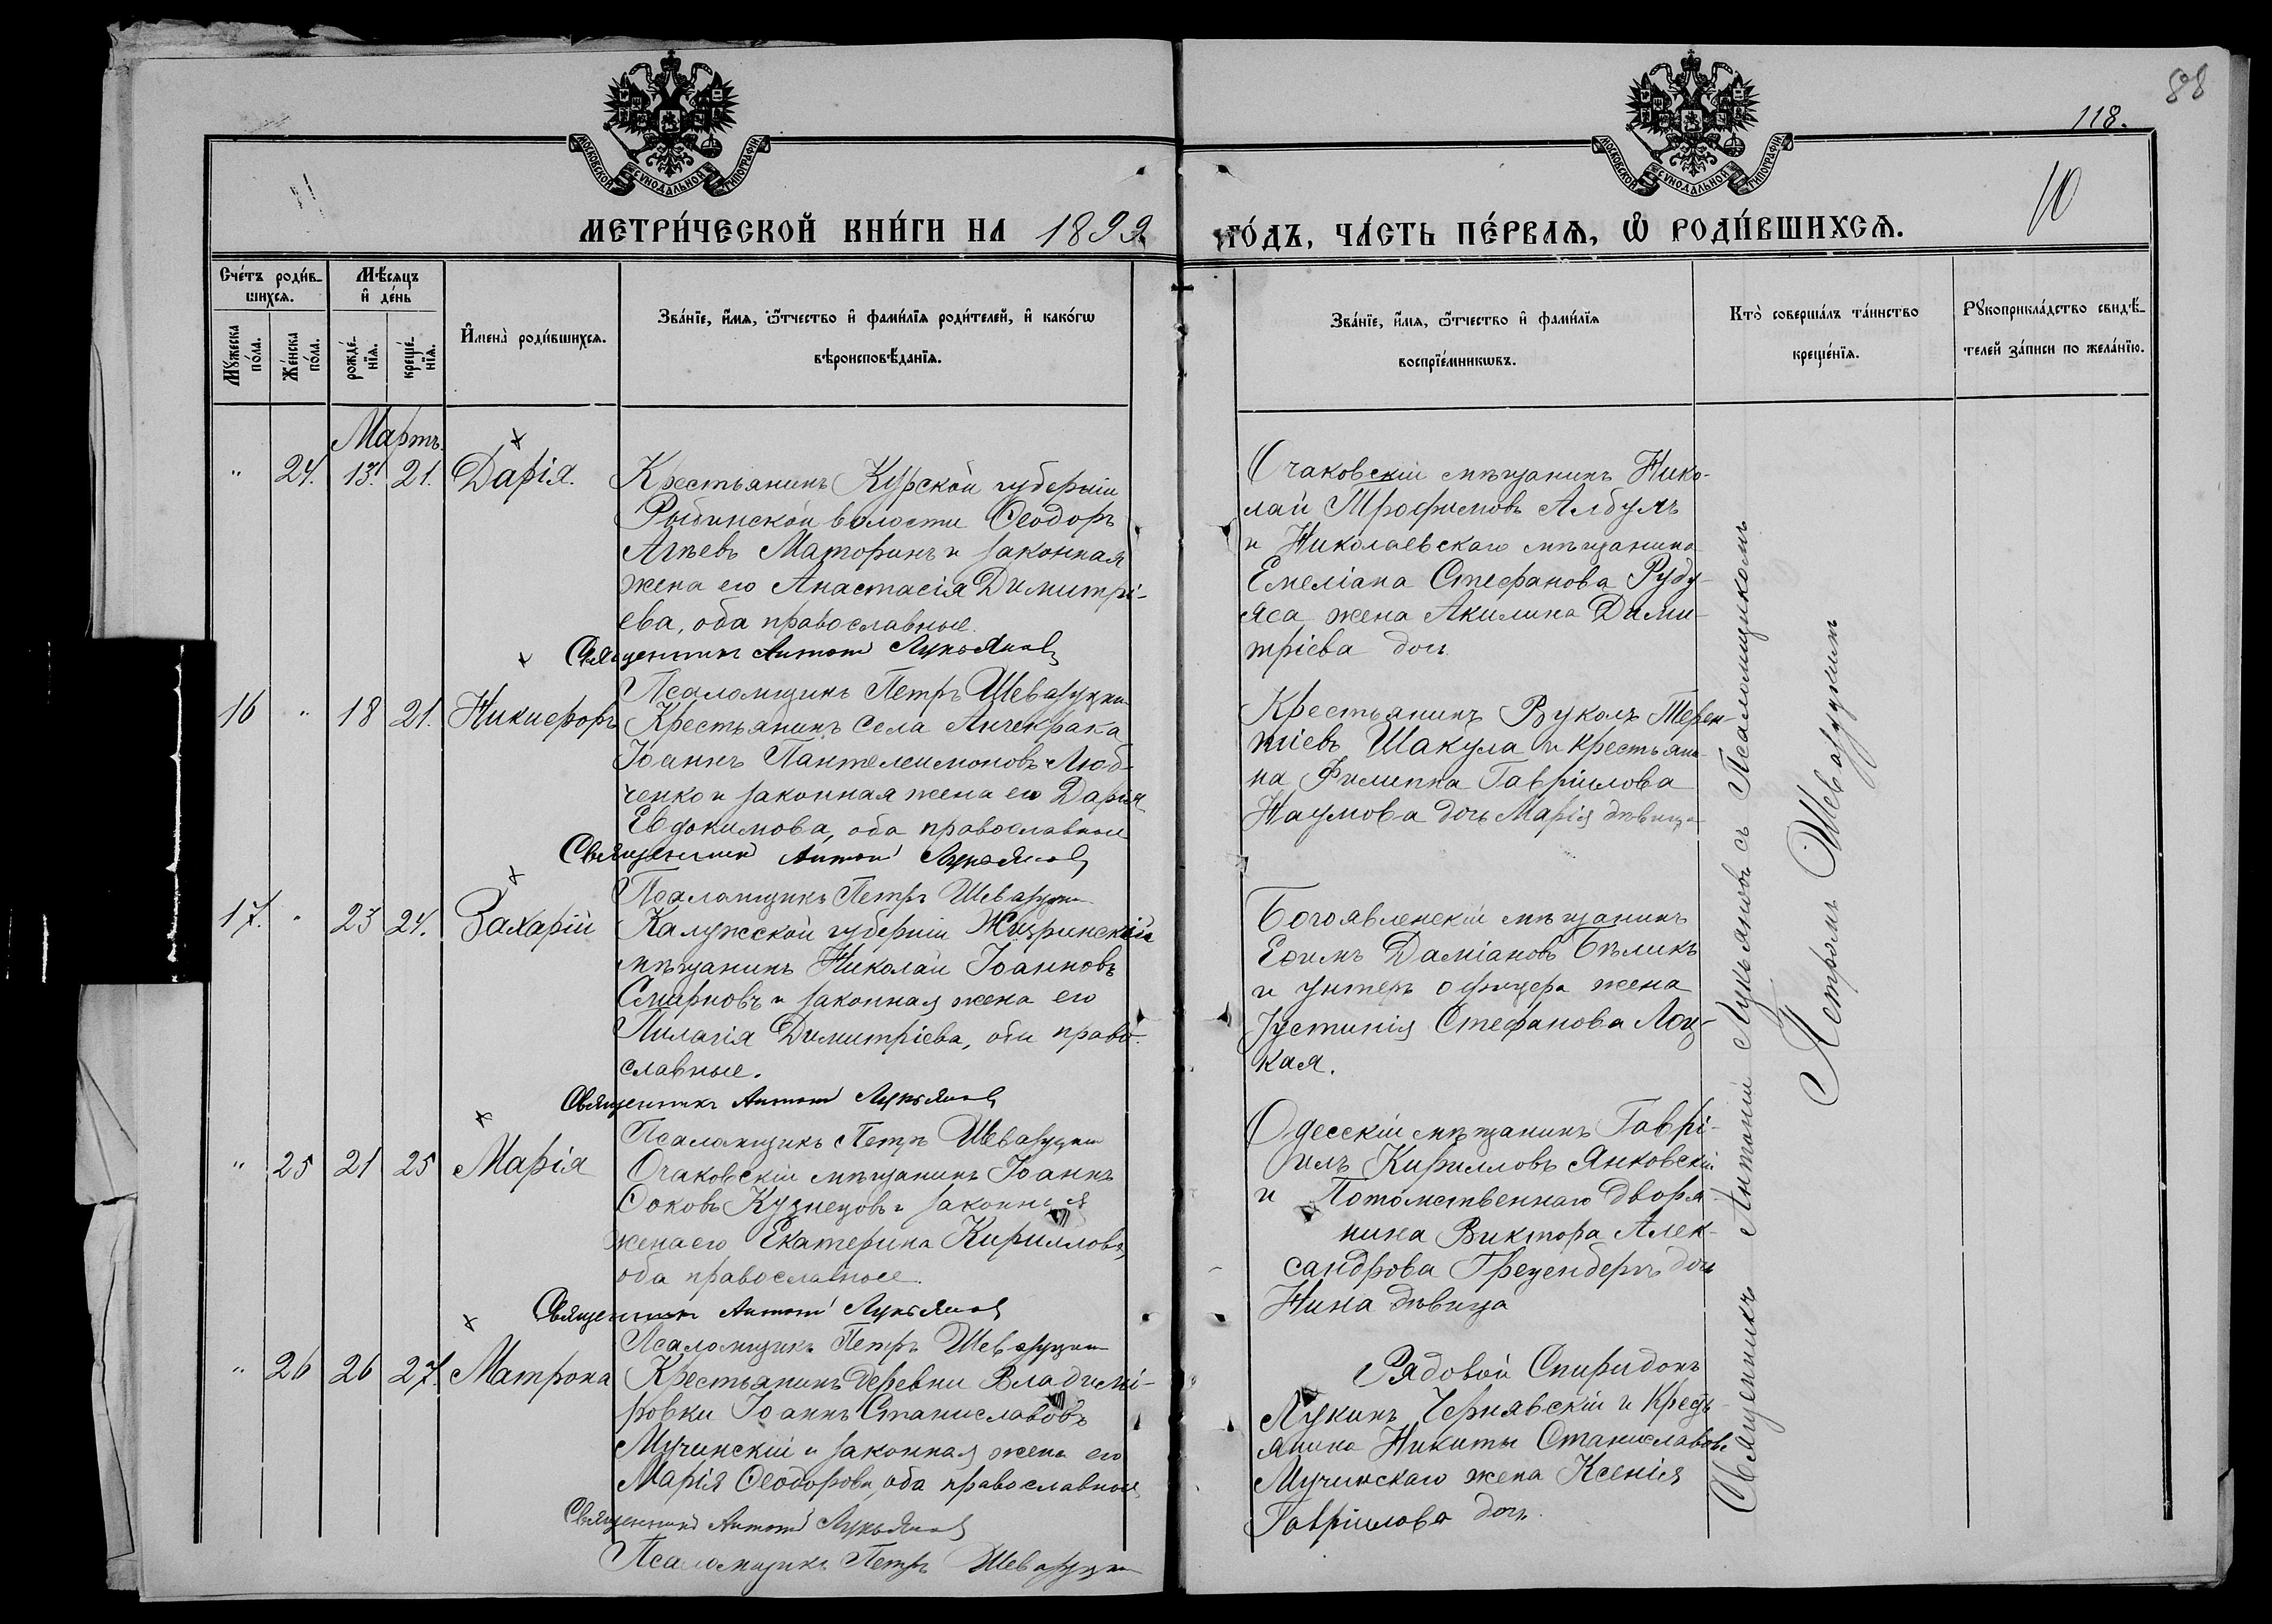 88
118.
10
МОСКОВСКОЙ СѴНОДАЛЬНОЙ ТИПОГРАФІИ
МОСКОВСКОЙ СѴНОДАЛЬНОЙ ТИПОГРАФІИ
МЕТРИ́ЧЕСКОЙ КНИ́ГИ НА 1899
ГО́ДЪ, ЧА́СТЬ ПЕ́РВАѦ, Ѡ РОДИ́ВШИХСѦ.
Сче́тъ роди́в-
шихсѧ.
Мѣ́сѧцъ
и҆ де́нь
Мꙋ́жеска
по́ла.
Же́нска
по́ла.
рожде́-
нїѧ.
креще́-
нїѧ.
И҆мена̀ роди́вшихсѧ.
Зва́нїе, и҆́мѧ, ѻ҆́тчество и҆ фами́лїѧ роди́телей, и҆ како́гѡ
вѣроисповѣ́данїѧ.
Зва́нїе, и҆́мѧ, ѻ҆́тчество и҆ фами́лїѧ
воспрїе́мникѡвъ.
Кто̀ соверша́лъ та́инство
креще́нїѧ.
Рꙋкоприкла́дство свидѣ́-
телей за́писи по жела́нїю.
Мартъ
" 24. 13. 21. Дарія.
Крестьянинъ Курской губерніи
Рыбинской волости Ѳеодоръ
Агѣевъ Маторинъ и законная
жена его Анастасія Димитрі-
ева, оба православные.
Священникъ Антоній Лукьяновъ
Псаломщикъ Петръ Шевазуцкій
Очаковскій мѣщанинъ Нико-
лай Трофимовъ Албулъ
и Николаевскаго мѣщанина
Емеліана Стефанова Руду-
яса жена Акилина Дими-
тріева дочь
16 " 18 21. Никифоръ
Крестьянинъ села Анчекрака
Іоаннъ Пантелеимоновъ Люб-
ченко и законная жена его Дарія
Евдокимова, оба православные
Священникъ Антоній Лукьяновъ
Псаломщикъ Петръ Шевазуцкій
Крестьянинъ Вуколъ Терен-
тіевъ Шакула и крестьяни-
на Филиппа Гавріилова
Наумова дочь Марія дѣвица
17. " 23 24. Захарій
Калужской губерніи Жиздринскій
мѣщанинъ Николай Іоанновъ
Смирновъ и законная жена его
Пилагія Димитріева, оба право-
славные.
Священникъ Антоній Лукьяновъ
Псаломщикъ Петръ Шевазуцкій
Богоявленскій мѣщанинъ
Ефимъ Даміановъ Бѣликъ
и унтеръ офицера жена
Іустинія Стефанова Лоц-
кая.
" 25 21 25 Марія
Очаковскій мѣщанинъ Іоаннъ
Фоковъ Кузнецовъ и законная
жена его Екатерина Кириллова,
оба православные.
Священникъ Антоній Лукьяновъ
Псаломщикъ Петръ Шевазуцкій
Одесскій мѣщанинъ Гаврі-
илъ Кирилловъ Янковскій
и Потомственнаго дворя-
нина Виктора Алек-
сандрова Грецендерга дочь
Нина дѣвица
" 26 26 27. Матрона
Крестьянинъ деревни Владимі-
ровки Іоаннъ Станиславовъ
Мучинскій и законная жена его
Марія Ѳеодорова, оба православные
Священникъ Антоній Лукьяновъ
Псаломщикъ Петръ Шевазуцкій
Рядовой Спиридонъ
Лукинъ Чернявскій и Кресть-
янина Никиты Станиславова
Мучинскаго жена Ксенія
Гавріилова дочь.
Священникъ Антоній Лукьяновъ съ Псаломщикомъ
Петромъ Шевазуцкимъ